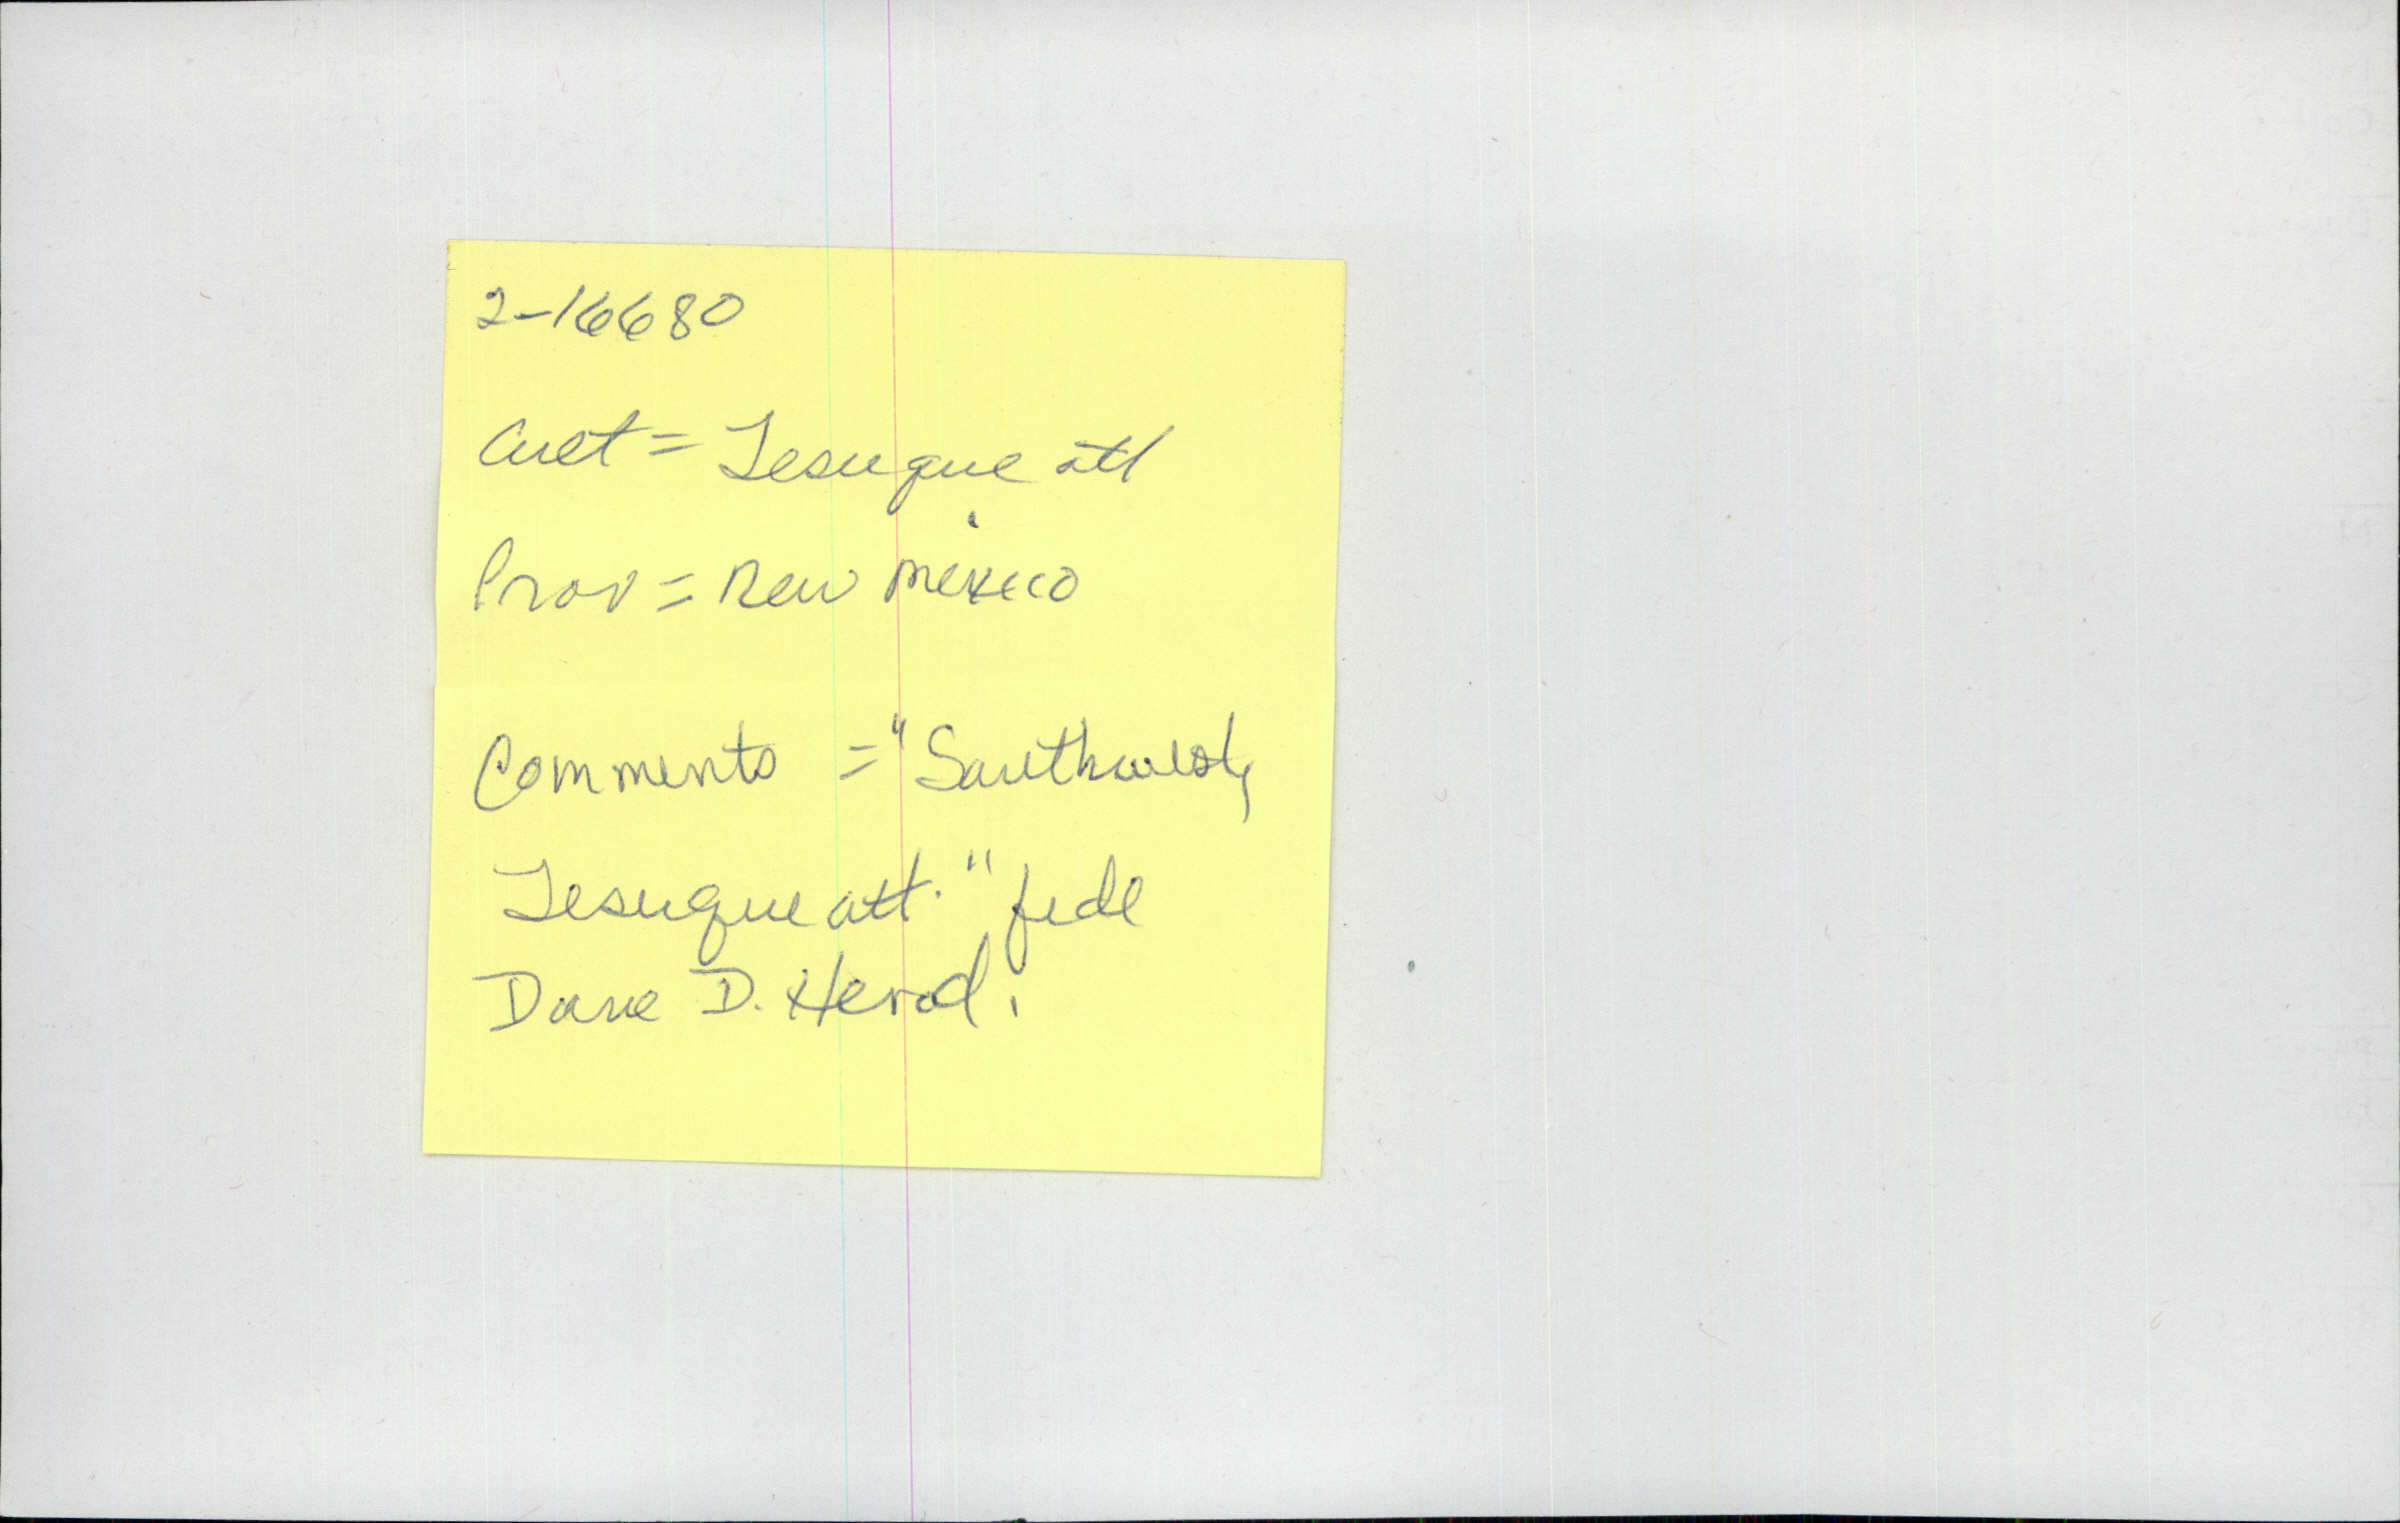 2-16680
Cult = Tesuque att
Prov = New Mexico
Comments = "Southwest,
Tesuque att." fide
Dave D. Herod.